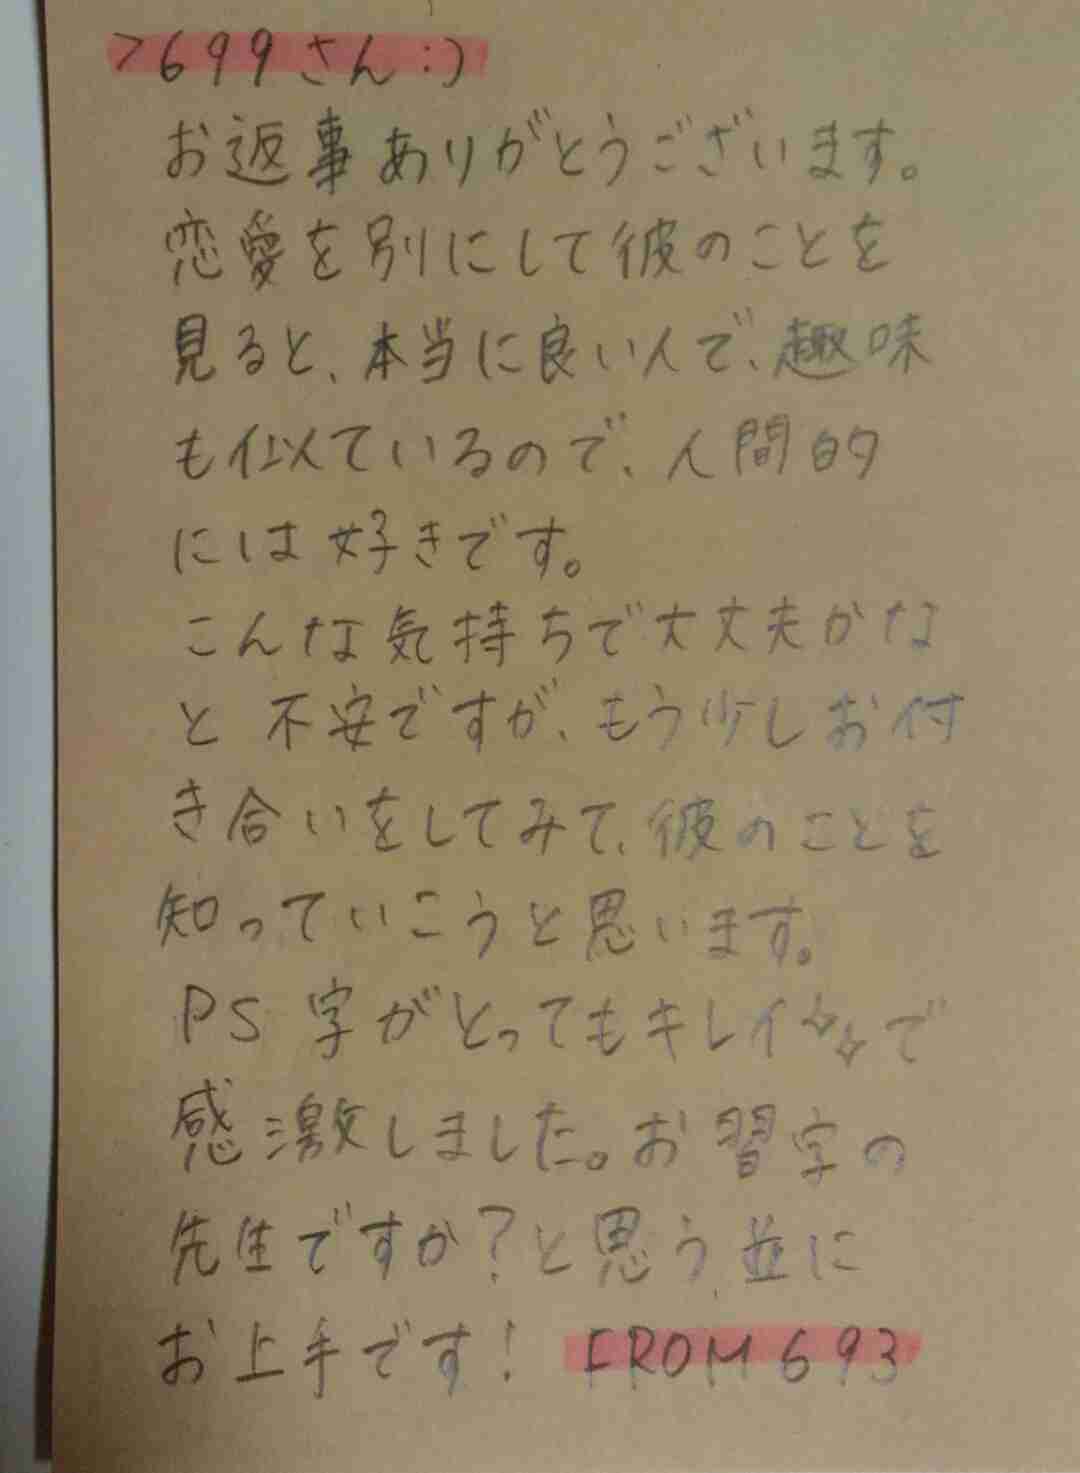 >699さん:)
お返事ありがとうございます。
恋愛を別にして彼のことを
見ると、本当に良い人で、趣味
も似ているので、人間的
には好きです。
こんな気持ちで大丈夫かな
と不安ですが、もう少しお付
き合いをしてみて、彼のことを
知っていこうと思います。
PS 字がとってもキレイ✧✧で
感激しました。お習字の
先生ですか?と思う並に
お上手です! FROM693